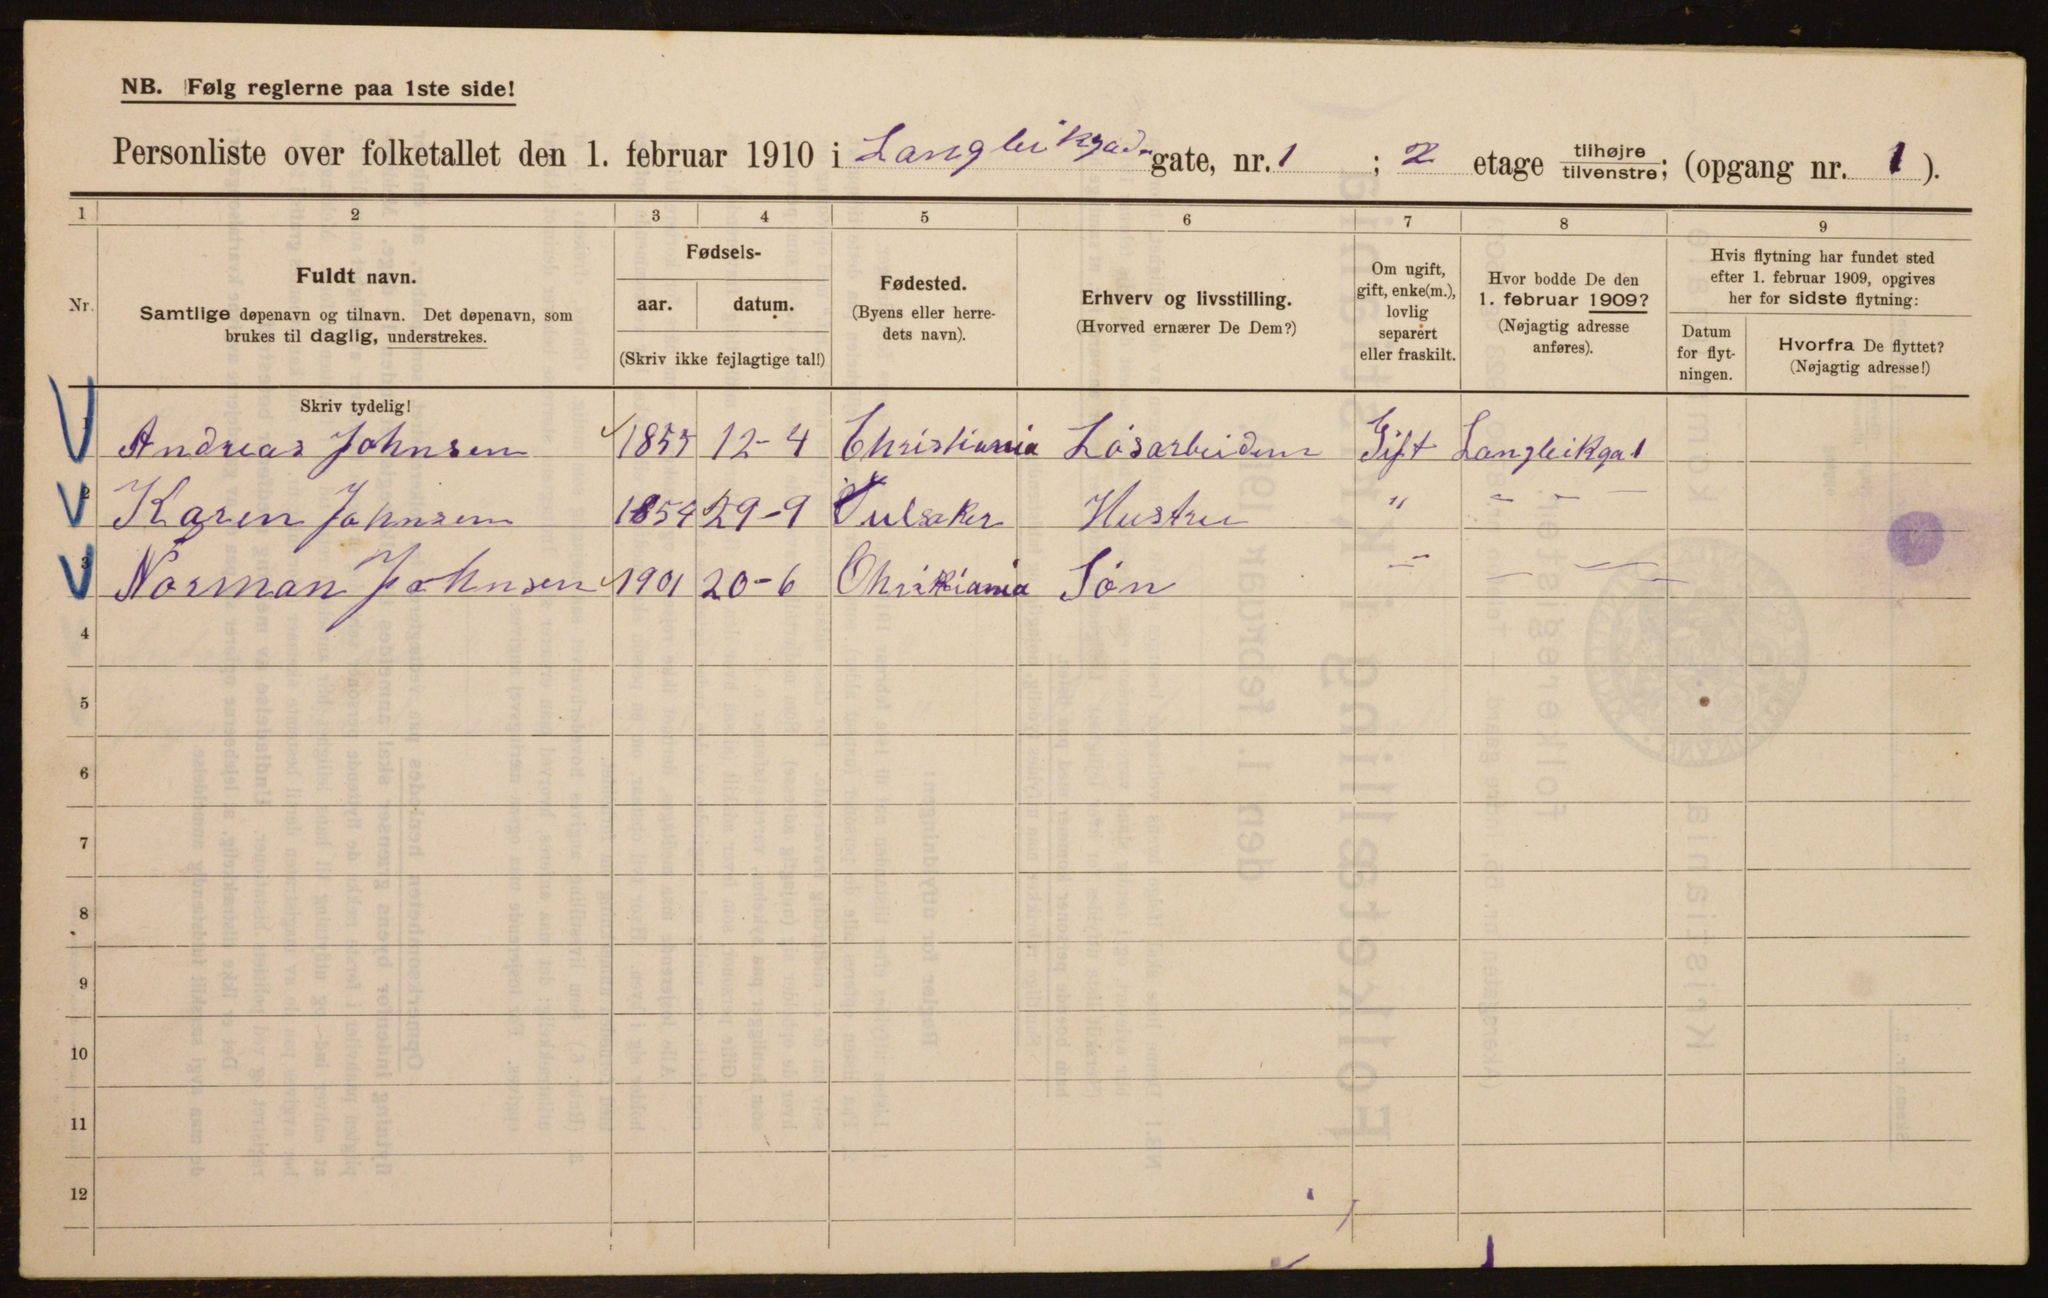 NB. Følg reglerne paa 1ste side!
Personliste over folketallet den 1. februar 1910 i Langleikgaden gate, nr. 1 ; 2 etage tilhøjre/tilvenstre; (opgang nr. 1 ).
1 2 3 4 5 6 7 8 9
Nr. Fuldt navn. Samtlige døpenavn og tilnavn. Det døpenavn, som brukes til daglig, understrekes. Fødsels- aar. datum. (Skriv ikke fejlagtige tal!) Fødested. (Byens eller herredets navn). Erhverv og livsstilling. (Hvorved ernærer De Dem?) Om ugift, gift, enke(m.), lovlig separert eller fraskilt. Hvor bodde De den 1. februar 1909? (Nøjagtig adresse anføres). Hvis flytning har fundet sted efter 1. februar 1909, opgives her for sidste flytning: Datum for flytningen. Hvorfra De flyttet? (Nøjagtig adresse!)
Skriv tydelig!
1 Andreas Johnsen 1855 12-4 Christiania Løsarbeider Gift Langleikga 1
2 Karen Johnsen 1854 29-9 Hustru " - - -
3 Norman Johnsen 1901 20-6 Christiania Søn - - - -
4
5
6
7
8
9
10
11
12